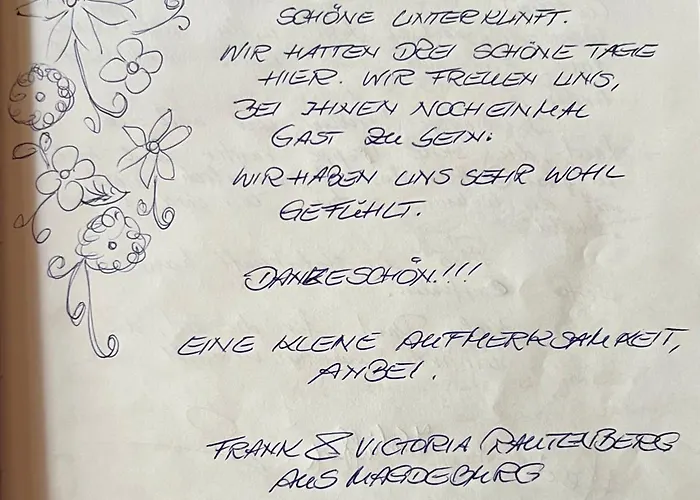 SCHÖNE UNTERKUNFT.
WIR HATTEN DREI SCHÖNE TAGE
HIER. WIR FREUEN UNS,
BEI IHNEN NOCH EINMAL
GAST ZU SEIN.
WIR HABEN UNS SEHR WOHL
GEFÜHLT.
DANKESCHÖN.!!!
EINE KLENE AUFMERKSAMKEIT,
ANBEI.
FRANK & VICTORIA RAUTENBERG
AUS MAGDEBURG